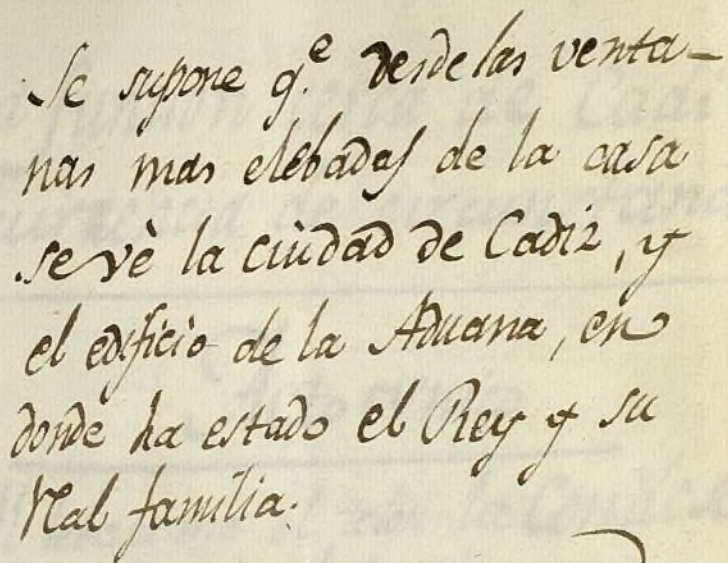 Se supone q.e desde las venta-
nas mas elebadas de la casa
se vè la ciudad de Cadiz, y
el edificio de la Aduana, en
donde ha estado el Rey y su
Real familia.